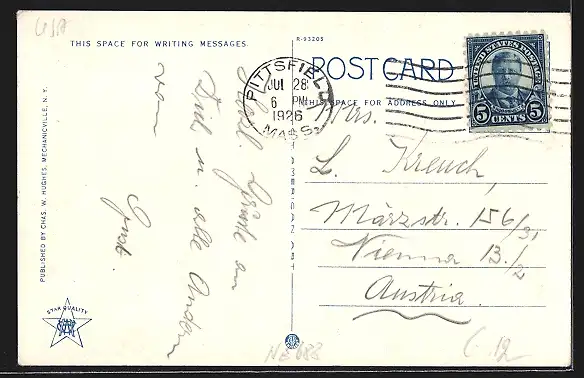 USA
THIS SPACE FOR WRITING MESSAGES.
R-93205
POST CARD
THIS SPACE FOR ADDRESS ONLY
PITTSFIELD
JUL 28
6 PM
1926
MASS.
UNITED STATES POSTAGE
5 CENTS 5
Herzl. Grüße an
Dich u. alle Andern
von
Gust.
Mrs.
L. Kreuch,
Märzstr. 156/31
Vienna 13./2
Austria.
PUBLISHED BY CHAS. W. HUGHES, MECHANICVILLE, N. Y.
STAR QUALITY